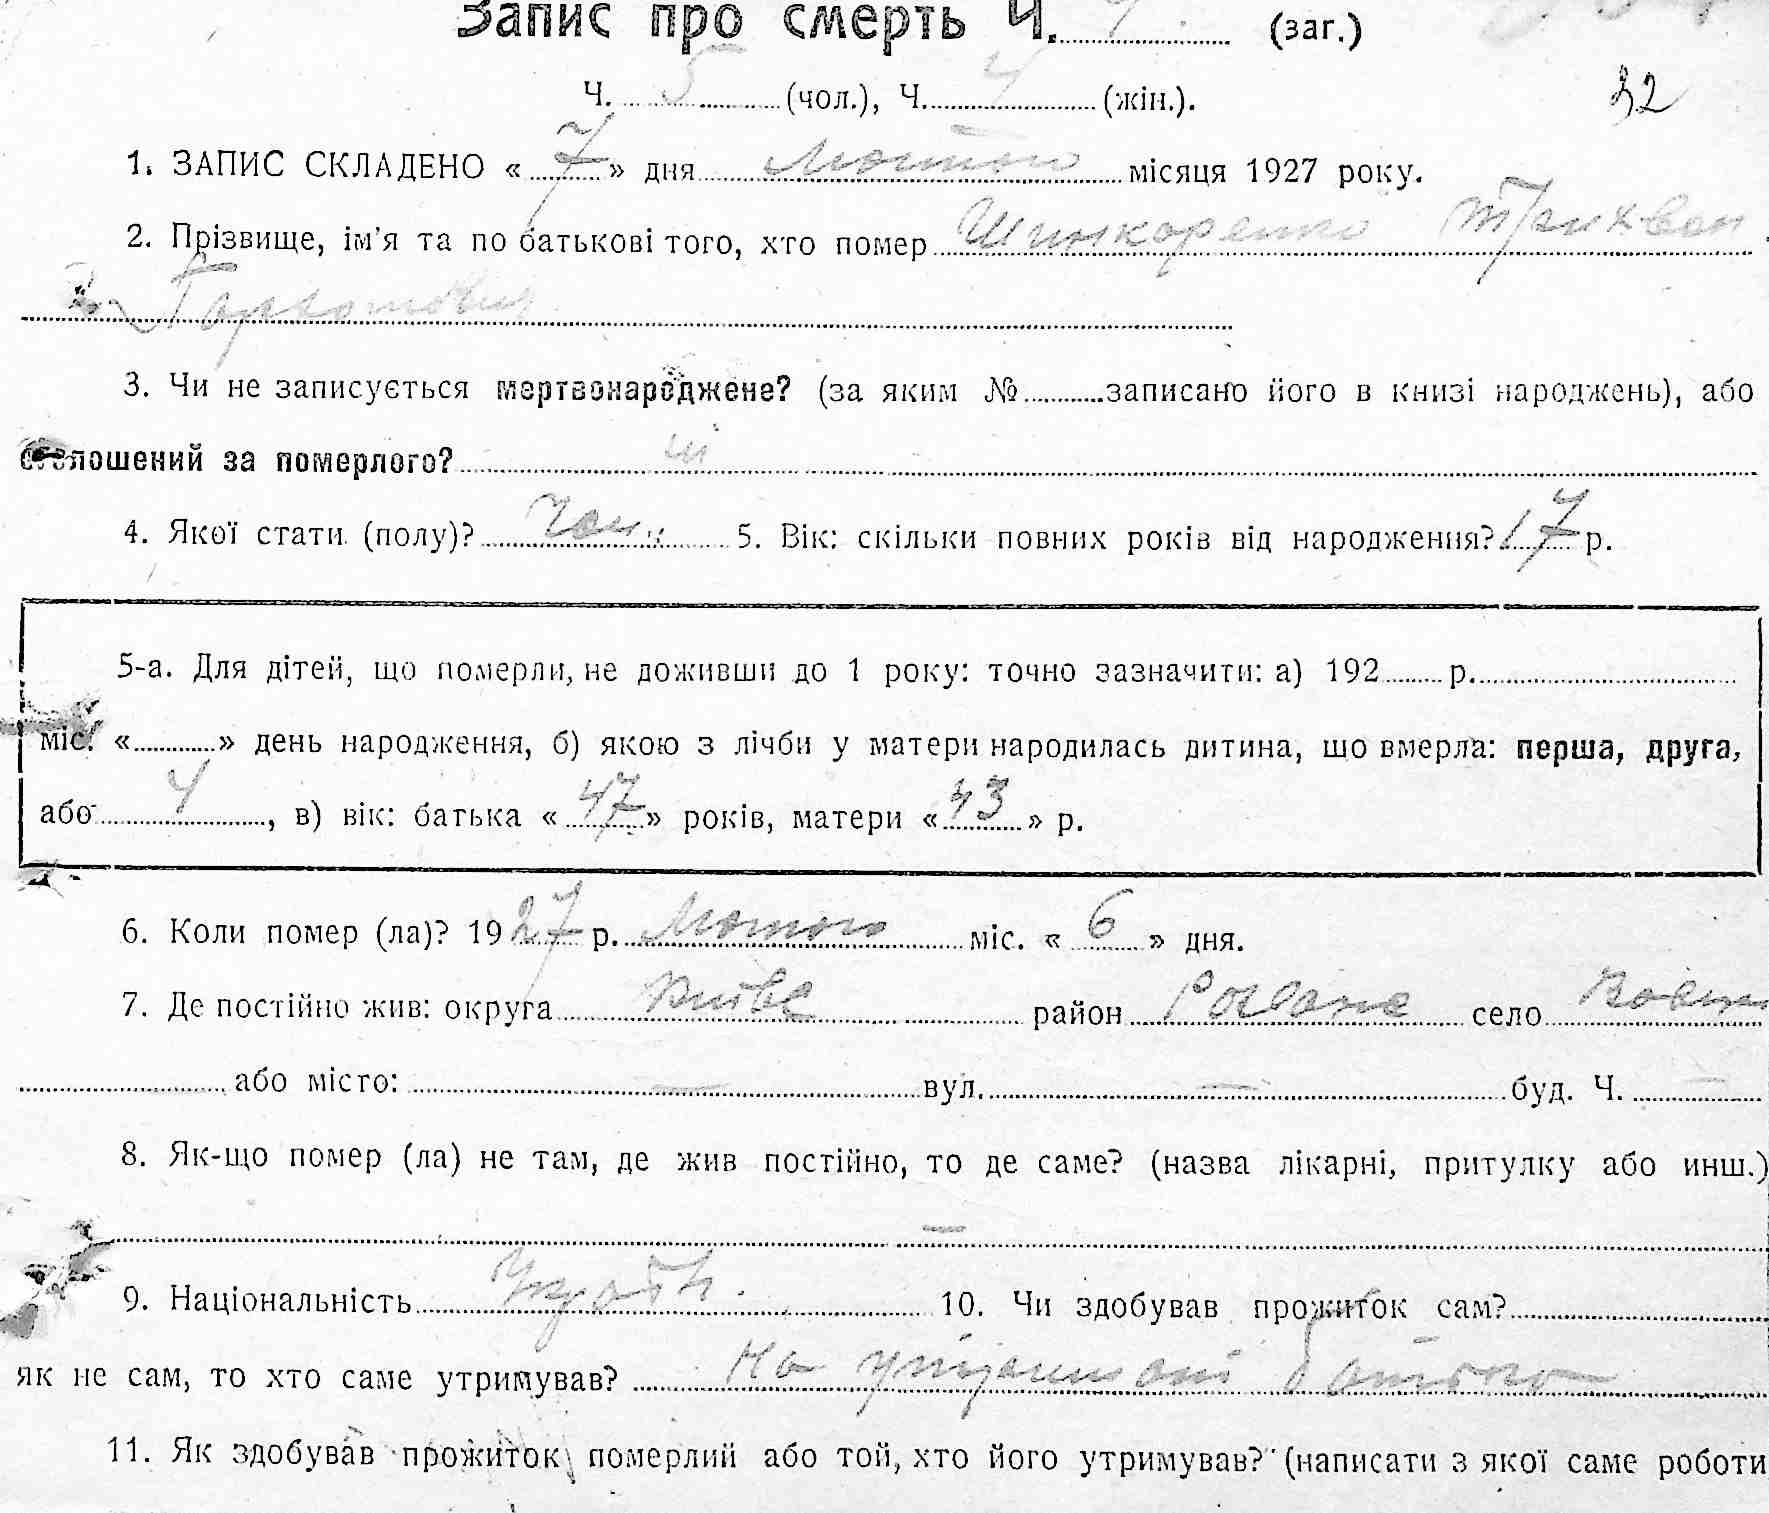 Запис про смерть Ч. (заг.)
Ч. 5 (чол.), Ч. 4 (жін.).
32
1. ЗАПИС СКЛАДЕНО « 7 » дня Лютого місяця 1927 року.
2. Прізвище, ім'я та по батькові того, хто помер Шинкаренко Трихвон
3. Чи не записується мертвонароджене? (за яким № записано його в книзі народжень), або
оголошений за померлого? ні
4. Якої стати (полу)? 5. Вік: скільки повних років від народження? 17 р.
5-а. Для дітей, що померли, не доживши до 1 року: точно зазначити: а) 192 р.
міс. « » день народження, б) якою з лічби у матери народилась дитина, що вмерла: перша, друга,
або 4, в) вік: батька « 47 » років, матери « 43 » р.
6. Коли помер (ла)? 1927 р. Лютого міс. « 6 » дня.
7. Де постійно жив: округа район село
або місто: — вул. — буд. Ч. —
8. Як-що помер (ла) не там, де жив постійно, то де саме? (назва лікарні, притулку або инш.)
—
9. Національність 10. Чи здобував прожиток сам?
як не сам, то хто саме утримував? На утриманні батька
11. Як здобував прожиток померлий або той, хто його утримував? (написати з якої саме роботи